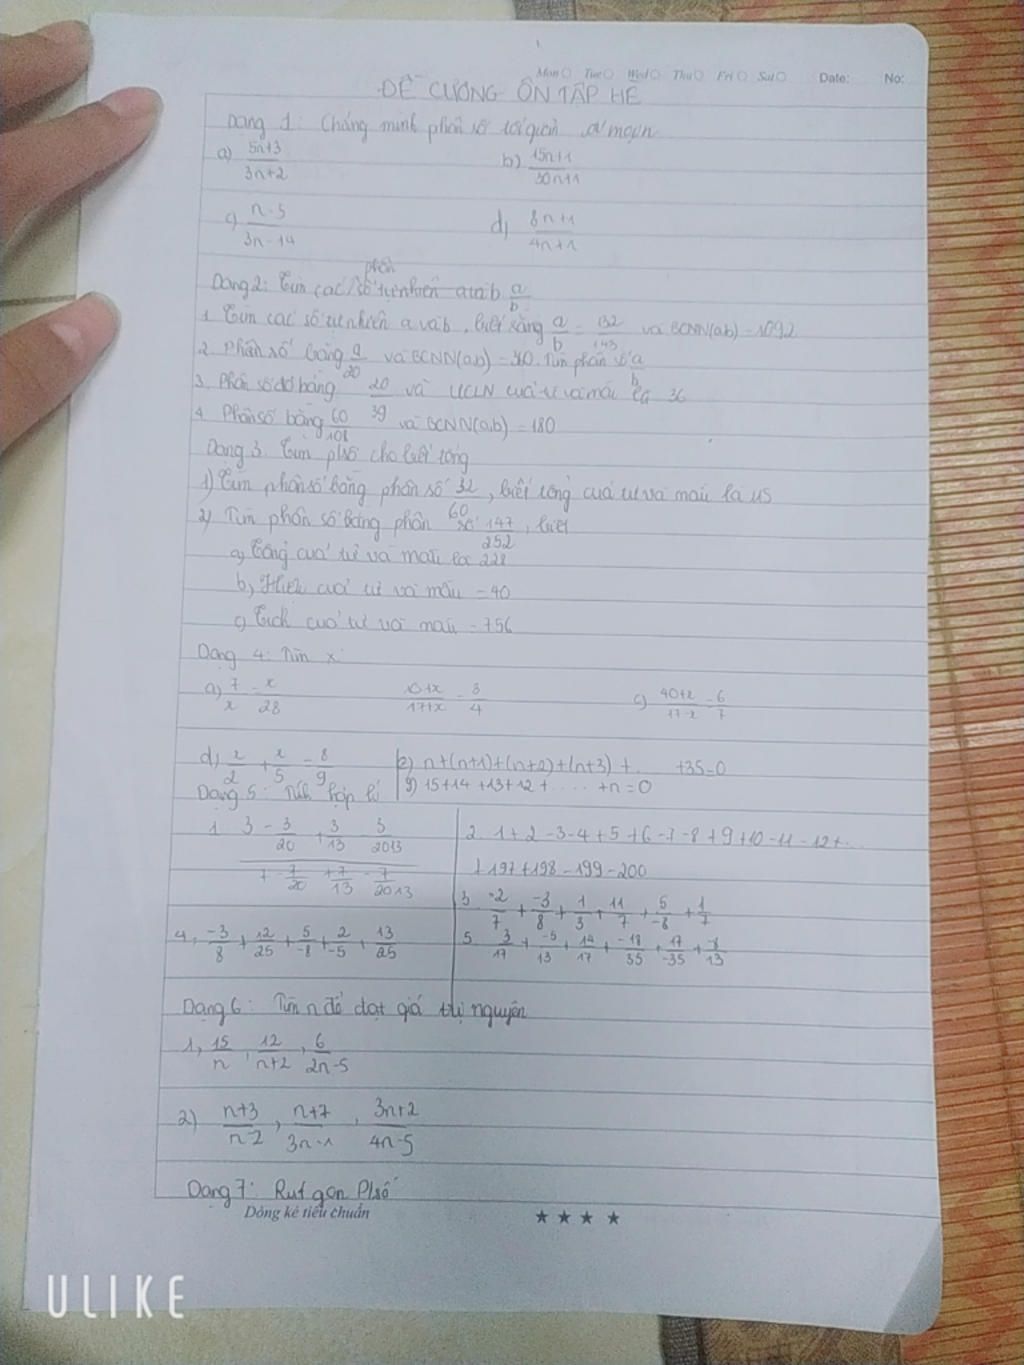 Mon Tue Wed Thu Fri Sat Date: No:
ĐỀ CƯƠNG ÔN TẬP HÈ
Dạng 1: Chứng minh phân số tối giản
a) 5n+3/3n+2 b) 15n+1/30n+1
c) n-5/3n-14 d) 8n+1/4n+1
Dạng 2: Tìm các phân số tự nhiên a và b a/b
1. Tìm các số tự nhiên a và b, biết rằng a/b = 132/143 và BCNN(a,b) = 1092
2. Phân số bằng 9/20 và BCNN(a,b) = 360. Tìm phân số a/b
3. Phân số đó bằng 20/39 và ƯCLN của tử và mẫu là 36
4. Phân số bằng 60/108 và BCNN(a,b) = 180
Dạng 3. Tìm p/số cho biết tổng
1) Tìm phân số bằng phân số 32/60, biết tổng của tử và mẫu là 115
2) Tìm phân số bằng phân số 147/252, biết
a) Tổng của tử và mẫu là 228
b) Hiệu của tử và mẫu = 40
c) Tích của tử và mẫu = 756
Dạng 4: Tìm x:
a) 7/x = x/28 10+x/17+x = 3/4 c) 40+x/77-x = 6/7
d) x/2 + x/5 = 8/9 e) n+(n+1)+(n+2)+(n+3)+... +35=0
g) 15+14+13+12+.....+n=0
Dạng 5: Tính hợp lí
1. 3 - 3/20 + 3/13 - 3/2013 2. 1+2-3-4+5+6-7-8+9+10-11-12+...
7 - 7/20 + 7/13 - 7/2013 +197+198-199-200
3. -2/7 + -3/8 + 1/3 + 11/7 + 5/-8 + 1/7
4, -3/8 + 12/25 + 5/-8 + 2/-5 + 13/25 5. 3/17 + -5/13 + 14/17 + -18/35 + 17/-35 + -8/13
Dạng 6: Tìm n để đạt giá trị nguyên
1, 15/n, 12/n+2, 6/2n-5
2) n+3/n-2, n+7/3n-1, 3n+2/4n-5
Dạng 7: Rút gọn P/số
Dòng kẻ tiêu chuẩn ★ ★ ★ ★
ULIKE